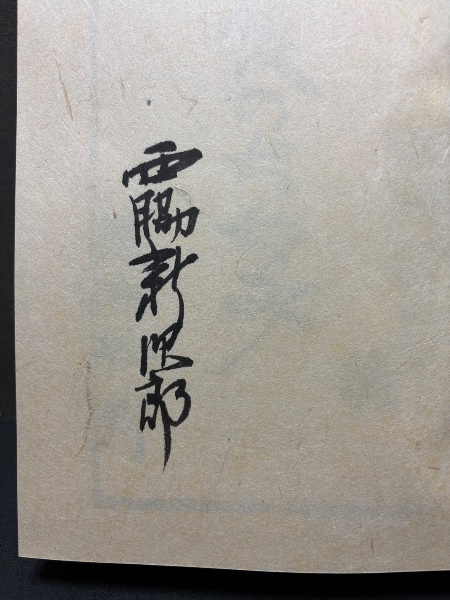 西脇新次郎